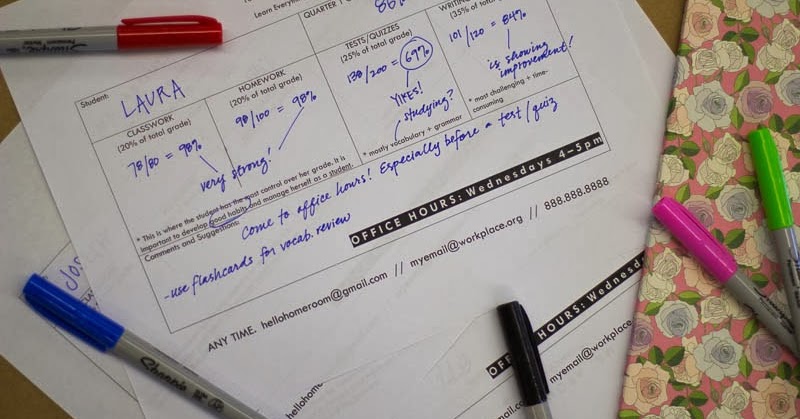 Learn Everything
QUARTER 1
86%
Student: LAURA
CLASSWORK
(20% of total grade)
78/80 = 98%
HOMEWORK
(20% of total grade)
98/100 = 98%
very strong!
TESTS/QUIZZES
(25% of total grade)
138/200 = 69%
YIKES!
studying?
* mostly vocabulary + grammar
WRITING
(35% of total grade)
101/120 = 84%
is showing
improvement!
* most challenging + time-
consuming
* This is where the student has the most control over her grade. It is
important to develop good habits and manage herself as a student.
Comments and Suggestions:
Come to office hours! Especially before a test/quiz
-use flashcards for vocab. review
OFFICE HOURS: Wednesdays 4–5pm
ANY TIME. hellohomeroom@gmail.com // myemail@workplace.org // 888.888.8888
OFFICE HOURS: Wednesda
hellohom
myemail@workplace
Jos
Sharpie